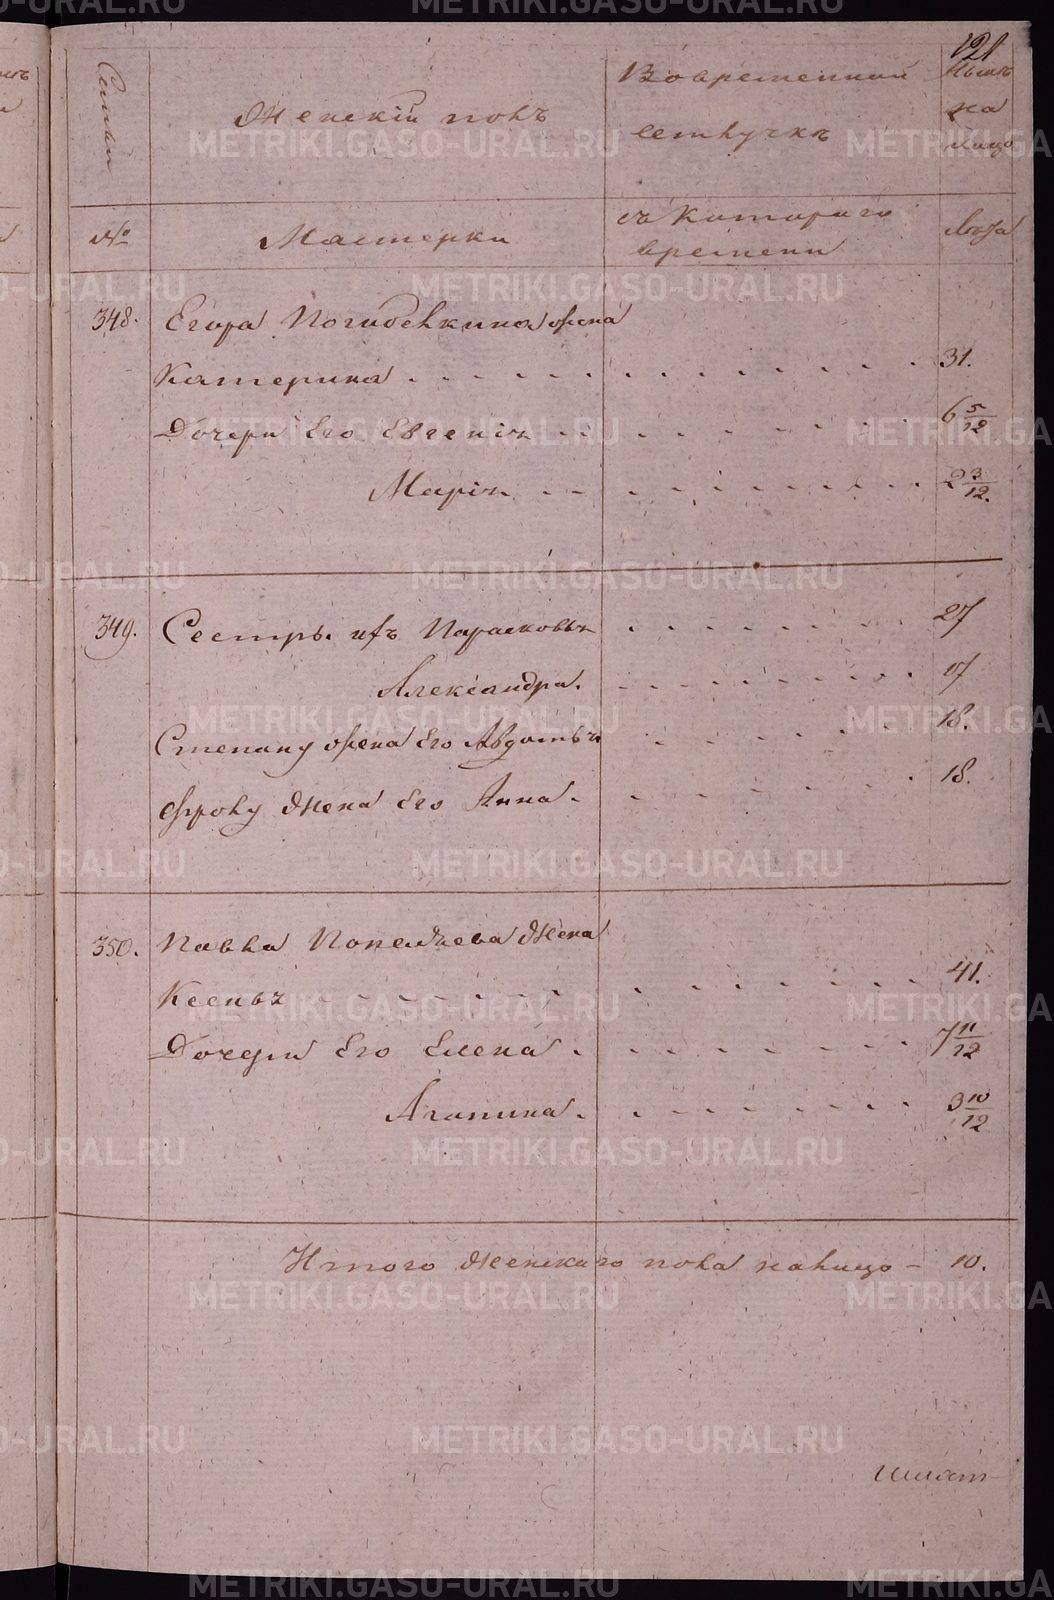 121
Семьи
Женскій полъ
Вовременной
отлучкѣ
Нынѣ
на
лицо
№
Мастерки
съ Котораго
времени
Лѣта
348.
Егора Погибелкина жена
Катерина 31.
Дочери Его Евгенія 6 5/12
Марія 2 3/12.
349.
Сестры ихъ Парасковья 27
Александра. 17
Степану жена Его Авдотья 18.
Фролу жена Его Анна. 18.
350.
Павла жена
Ксенья 41.
Дочери Его Елена 7 11/12
Агапина. 3 10/12
Итого женскаго пола налицо - 10.
METRIKI.GASO-URAL.RU